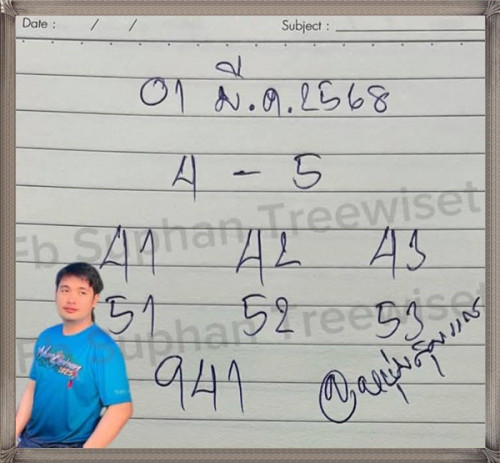 Date : / / Subject :
01 มี.ค.2568
4 - 5
41 42 43
Fb Suphan Treewiset
51 52 53
Fb Suphan Treewiset
941